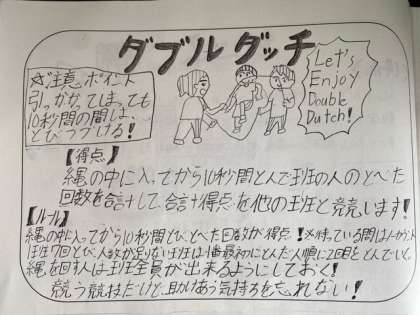 ダブルダッチ
Let's
Enjoy
Double
Dutch!
☆ご注意ポイント
引っかかってしまっても
10秒間の間は、
とびつづける!
【得点】
縄の中に入ってから10秒間とんで班の人のとべた
回数を合計して、合計得点を他の班と競います!
【ルール】
縄の中に入ってから10秒間とび、とべた回数が得点!※待っている間は
班7回とび、人数が足りない班は1番最初にとんだ人順に2回目をとんでいく
縄を回す人は班全員が出来るようにしておく!
競う競技だけど、助けあう気持ちを忘れない!